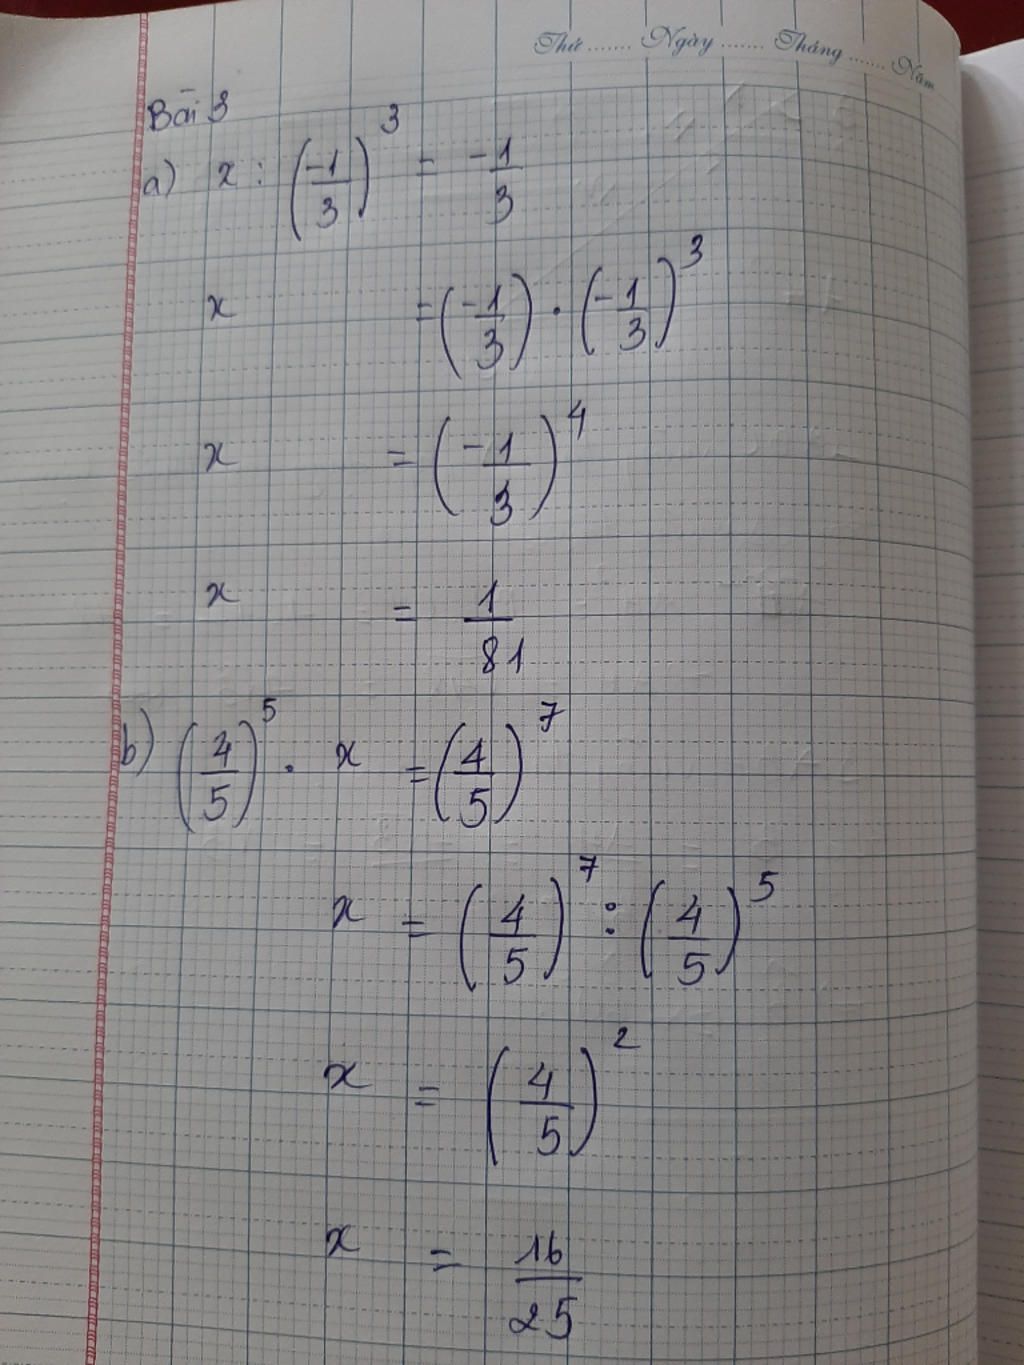 Thứ ....... Ngày ....... Tháng ....... Năm
Bài 3
a) x : (-1/3)^3 = -1/3
x = (-1/3) . (-1/3)^3
x = (-1/3)^4
x = 1/81
b) (4/5)^5 . x = (4/5)^7
x = (4/5)^7 : (4/5)^5
x = (4/5)^2
x = 16/25